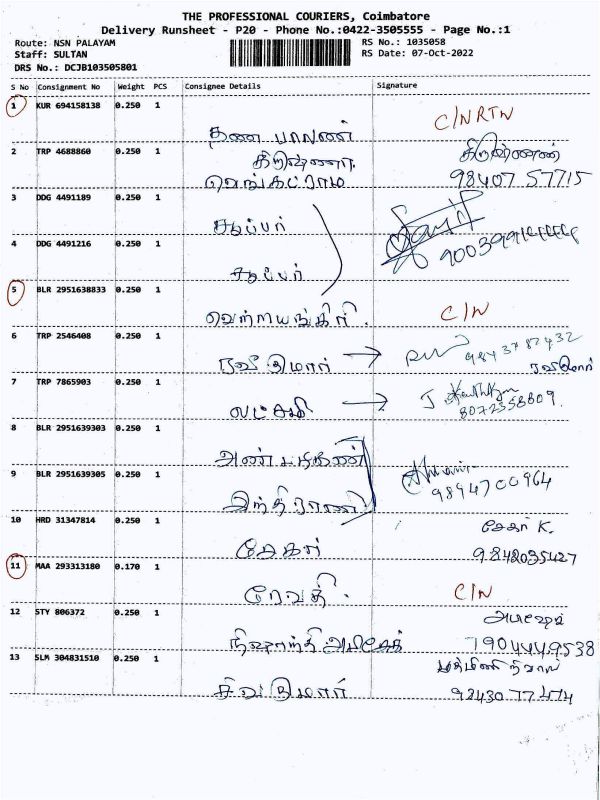 THE PROFESSIONAL COURIERS, Coimbatore
Delivery Runsheet - P20 - Phone No.:0422-3505555 - Page No.:1
Route: NSN PALAYAM
Staff: SULTAN
DRS No.: DCJB103505801
RS No.: 1035058
RS Date: 07-Oct-2022
S No Consignment No Weight PCS Consignee Details Signature
1 KUR 694158138 0.250 1
C/NRTN
2 TRP 4688860 0.250 1
கிருஷ்ணா
வெங்கட்ராம 98407 57715
3 DDG 4491189 0.250 1
சூப்பர்
4 DDG 4491216 0.250 1
சூப்பர்
5 BLR 2951638833 0.250 1
வெற்றியங்கிரி. C/N
6 TRP 2546408 0.250 1
ரவீ குமார் → 9843787432
ரவிகுமார்
7 TRP 7865903 0.250 1
லட்சுமி → 8072358809.
8 BLR 2951639303 0.250 1
9 BLR 2951639305 0.250 1
இந்திராணி 9894700964
10 HRD 31347814 0.250 1
சேகர் K.
சேகர் 9842035427
11 MAA 293313180 0.170 1
ரேவதி. C/N
12 STY 806372 0.250 1
நிஷாந்தி அபிஷேக் 7904449538
13 SLM 304831510 0.250 1
சிவகுமார் 98430 77474